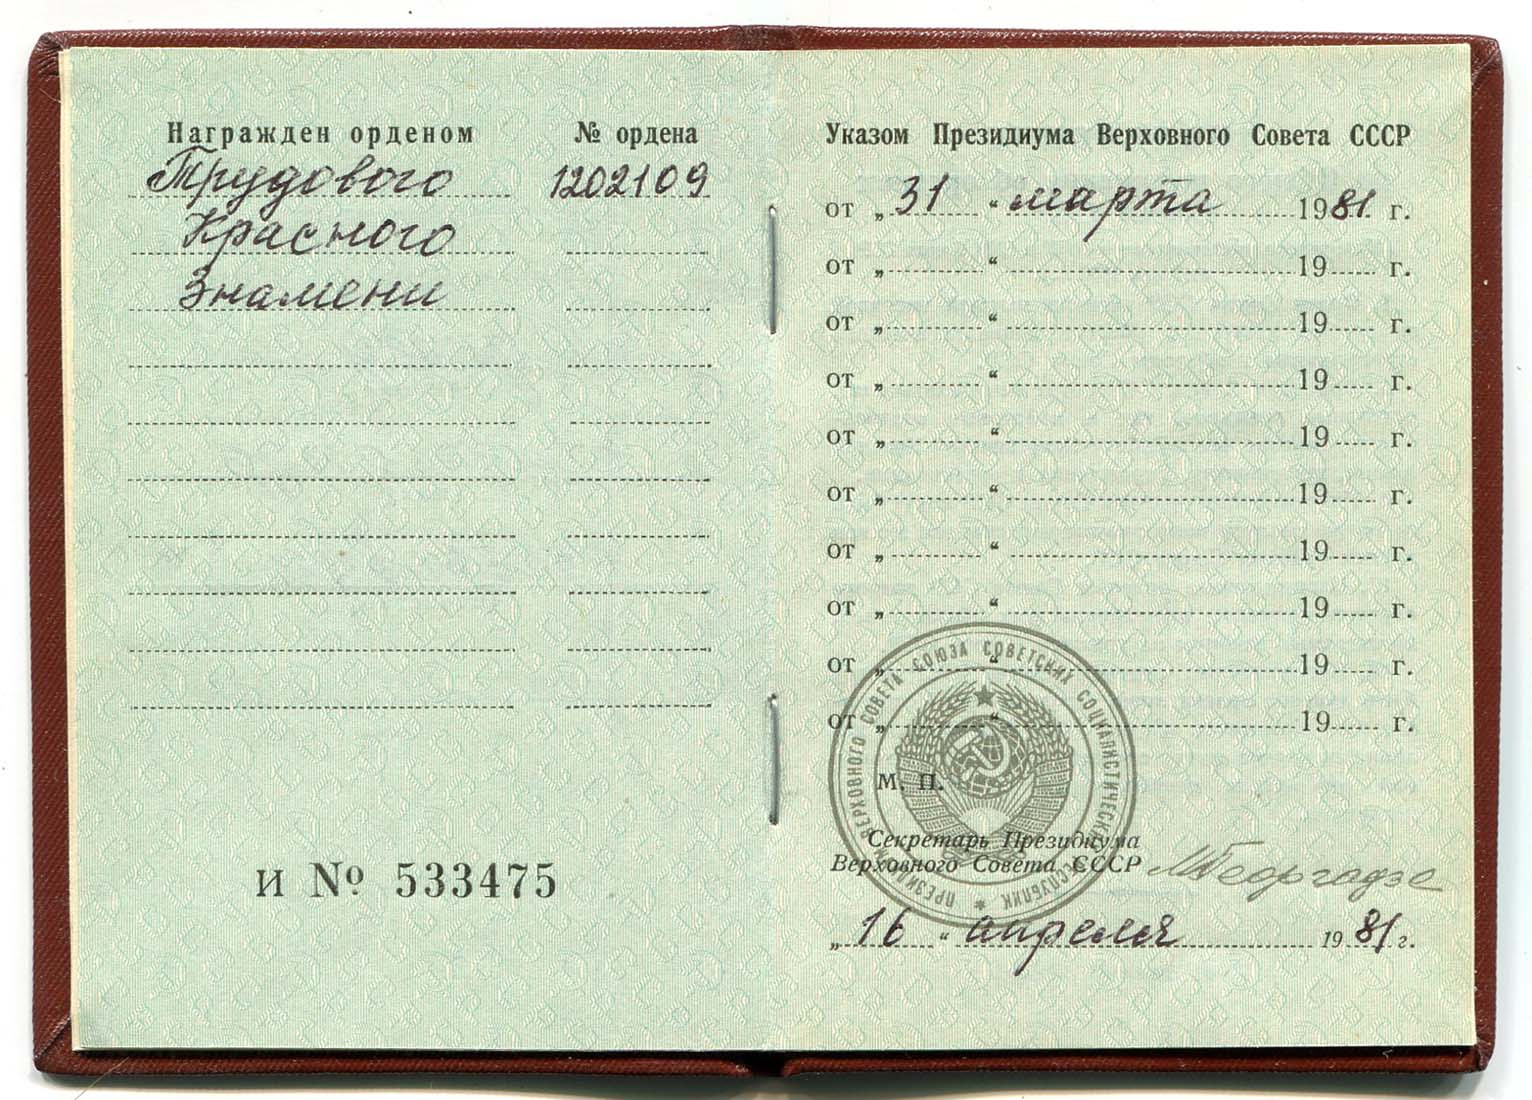 Награжден орденом
№ ордена
Трудового
1202109
Красного
Знамени
И № 533475
Указом Президиума Верховного Совета СССР
от „31“ марта 1981 г.
от „ “ 19 г.
от „ “ 19 г.
от „ “ 19 г.
от „ “ 19 г.
от „ “ 19 г.
от „ “ 19 г.
от „ “ 19 г.
от „ “ 19 г.
от „ “ 19 г.
ПРЕЗИДИУМ ВЕРХОВНОГО СОВЕТА СОЮЗА СОВЕТСКИХ СОЦИАЛИСТИЧЕСКИХ РЕСПУБЛИК
М. П.
Секретарь Президиума
Верховного Совета СССР МГеоргадзе
„16“ апреля 1981 г.